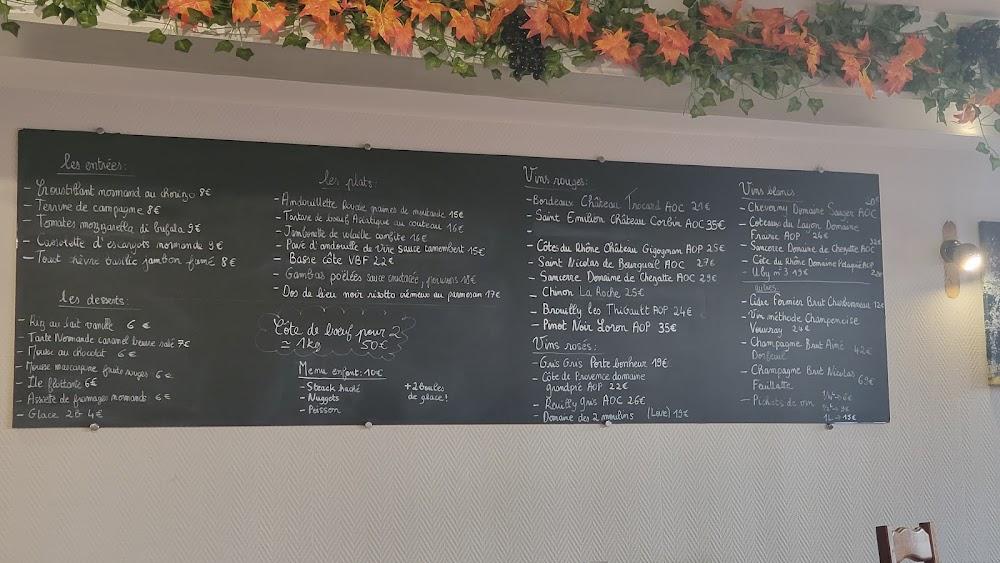 les entrées:
- Croustillant normand au chorizo 8€
- Terrine de campagne 8€
- Tomates mozzarella di bufala 9€
- Cassolette d'escargots normande 9€
- Toast chèvre basilic jambon fumé 8€
les desserts:
- Riz au lait vanille 6€
- Tarte Normande caramel beurre salé 7€
- Mousse au chocolat 6€
- Mousse mascarpone fruits rouges 6€
- Île flottante 6€
- Assiette de fromages normands 6€
- Glace 2b 4€
les plats:
- Andouillette graines de moutarde 15€
- Tartare de boeuf Asiatique au couteau 16€
- Jambonette de volaille confite 16€
- Pavé d'andouille de Vire sauce camembert 15€
- Basse côte VBF 22€
- Gambas poêlées sauce crustacée, poivrons 18€
- Dos de lieu noir risotto crémeux au parmesan 17€
Côte de boeuf pour 2
≃ 1kg 50€
Menu enfant: 10€
- Steack haché
- Nuggets
- Poisson
+ 2 boules
de glace!
Vins rouges:
- Bordeaux Château Trocard AOC 21€
- Saint Emilion Château Corbin AOC 35€
-
- Côtes du Rhône Château Gigognan AOP 25€
- Saint Nicolas de Bourgueil AOC 27€
- Sancerre Domaine de Chezatte AOC 29€
- Chinon La Roche 25€
- Brouilly les Thibault AOP 24€
- Pinot Noir Loron AOP 35€
Vins rosés:
- Gris Gris Porte bonheur 19€
- Côte de Provence domaine
grandpré AOP 22€
- Reuilly Gris AOC 26€
- Domaine des 2 moulins (Loire) 19€
Vins blancs
- Cheverny Domaine Sauger AOC
- Coteaux du Layon Domaine
AOP 24€
- Sancerre Domaine de Chezatte AOC
32€
- Côte du Rhône Domaine AOP
- Uby n°3 19€
autres:
- Cidre Fermier Brut Charbonneau 12€
- Vin méthode Champenoise
Vouvray 24€
- Champagne Brut Aimé
42€
- Champagne Brut Nicolas
Feuillatte 69€
- Pichets de vin 1/4 → 6€
1/2 → 9€
1L → 15€